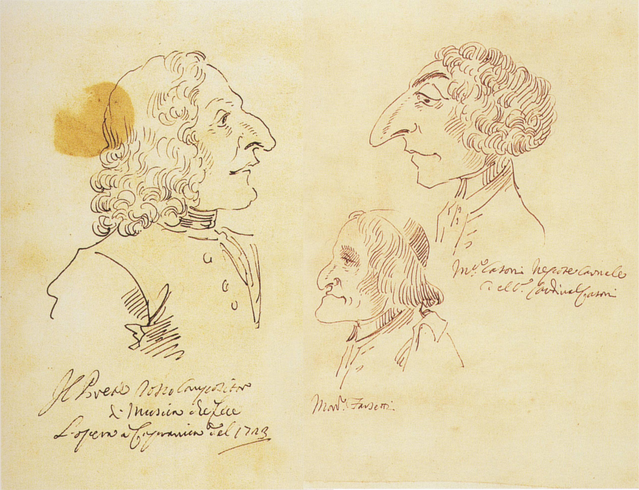 Il Prete rosso Compositore
di Musica che fece
L'opera a Capranica del 1723
Mr. Casoni Nepote Carnale
del Sr. Cardinal Casoni
Monr. Farsetti